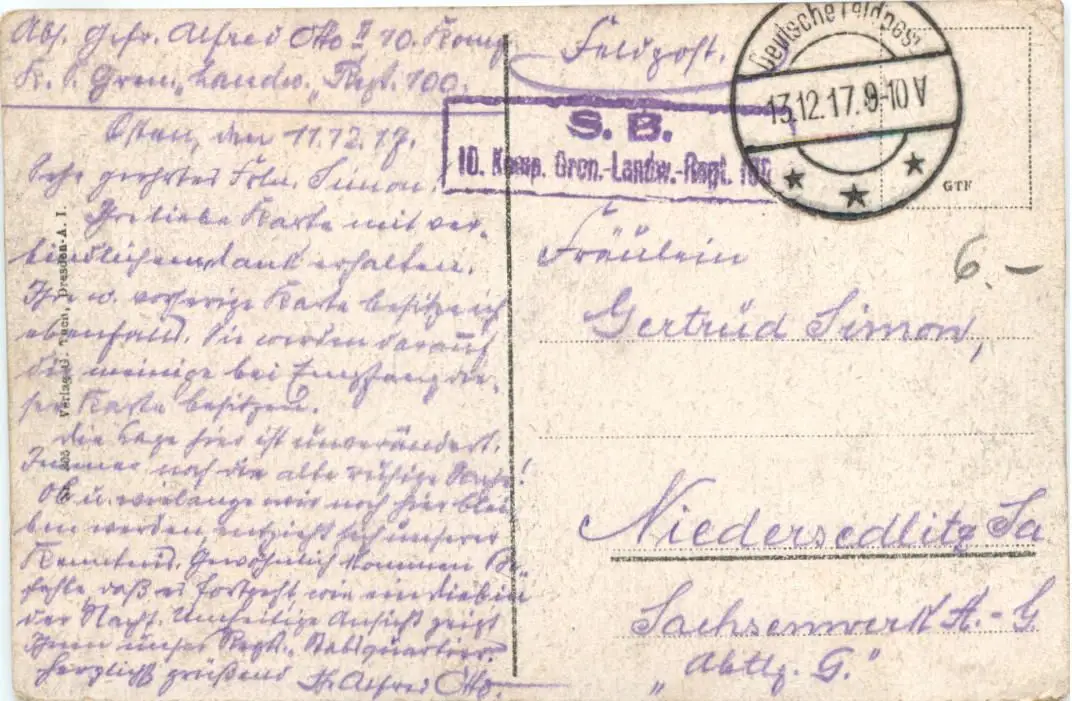 Abs. Gefr. Alfred Otto II 10. Komp.
K. S. Gren. „Landw.„ Regt. 100.
Feldpost.
Deutsche Feldpost
13.12.17. 9-10 V
S. B.
10. Komp. Gren.-Landw.-Regt. 100
GTN
Osten, den 11.12.17.
Sehr geehrtes Frln. Simon.
Ihre liebe Karte mit ver-
bindlichem dank erhalten.
Ihre w. vorherige Karte besitze ich
ebenfalls. Sie werden darauf
die meinige bei Empfang die-
ser Karte besitzen.
Die Lage hier ist unverändert.
Immer noch die alte ruhige
Ob u. wielange wir noch hier blei-
ben werden, entzieht sich unserer
Kenntnis. Gewöhnlich kommen Be-
fehle, daß es fortgeht wie ein dieb in
der Nacht. Umseitige Ansicht zeigt
Ihnen unser Regts. Stabsquartier.
Herzlichst grüßend Alfred Otto.
Fräulein
6.-
Gertrud Simon,
Niedersedlitz Sa
Sachsenwerk A.-G
„Abtlg. G."
Verlag Dresden-A. I.